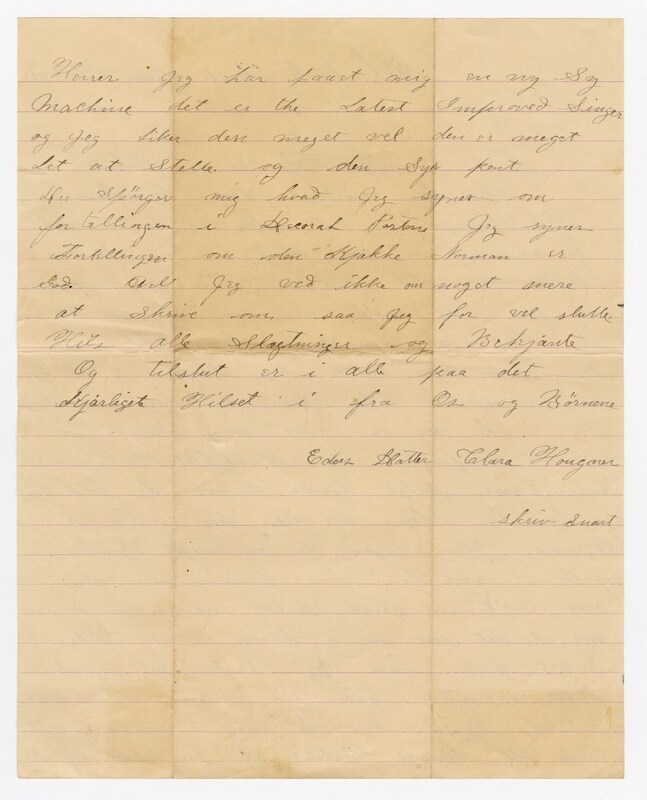 Herrer Jeg har faaet mig en ny Sy
Machine det er the Latest Improved Singer
og Jeg Liker den meget vel den er meget
Let at Stelle. og den Syr pent
Du Spörger mig hvad Jeg synes om
fortellingen i Decorah Posten Jeg synes
Fortellingen om den Kjække Norman er
God. Vel Jeg ved ikke om noget mere
at skrive om, saa Jeg for vel slutte
Hils alle Slægtninger og Bekjante
Og tilslut er i alle paa det
Kjærligste Hilset i fra Os og Börnene
Eders Datter Clara
skriv snart